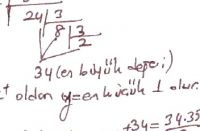 24 3
8 3
2
34 (en büyük değeri)
z⁺ oldan y=en küçük 1 olur.
+34 = 34.35